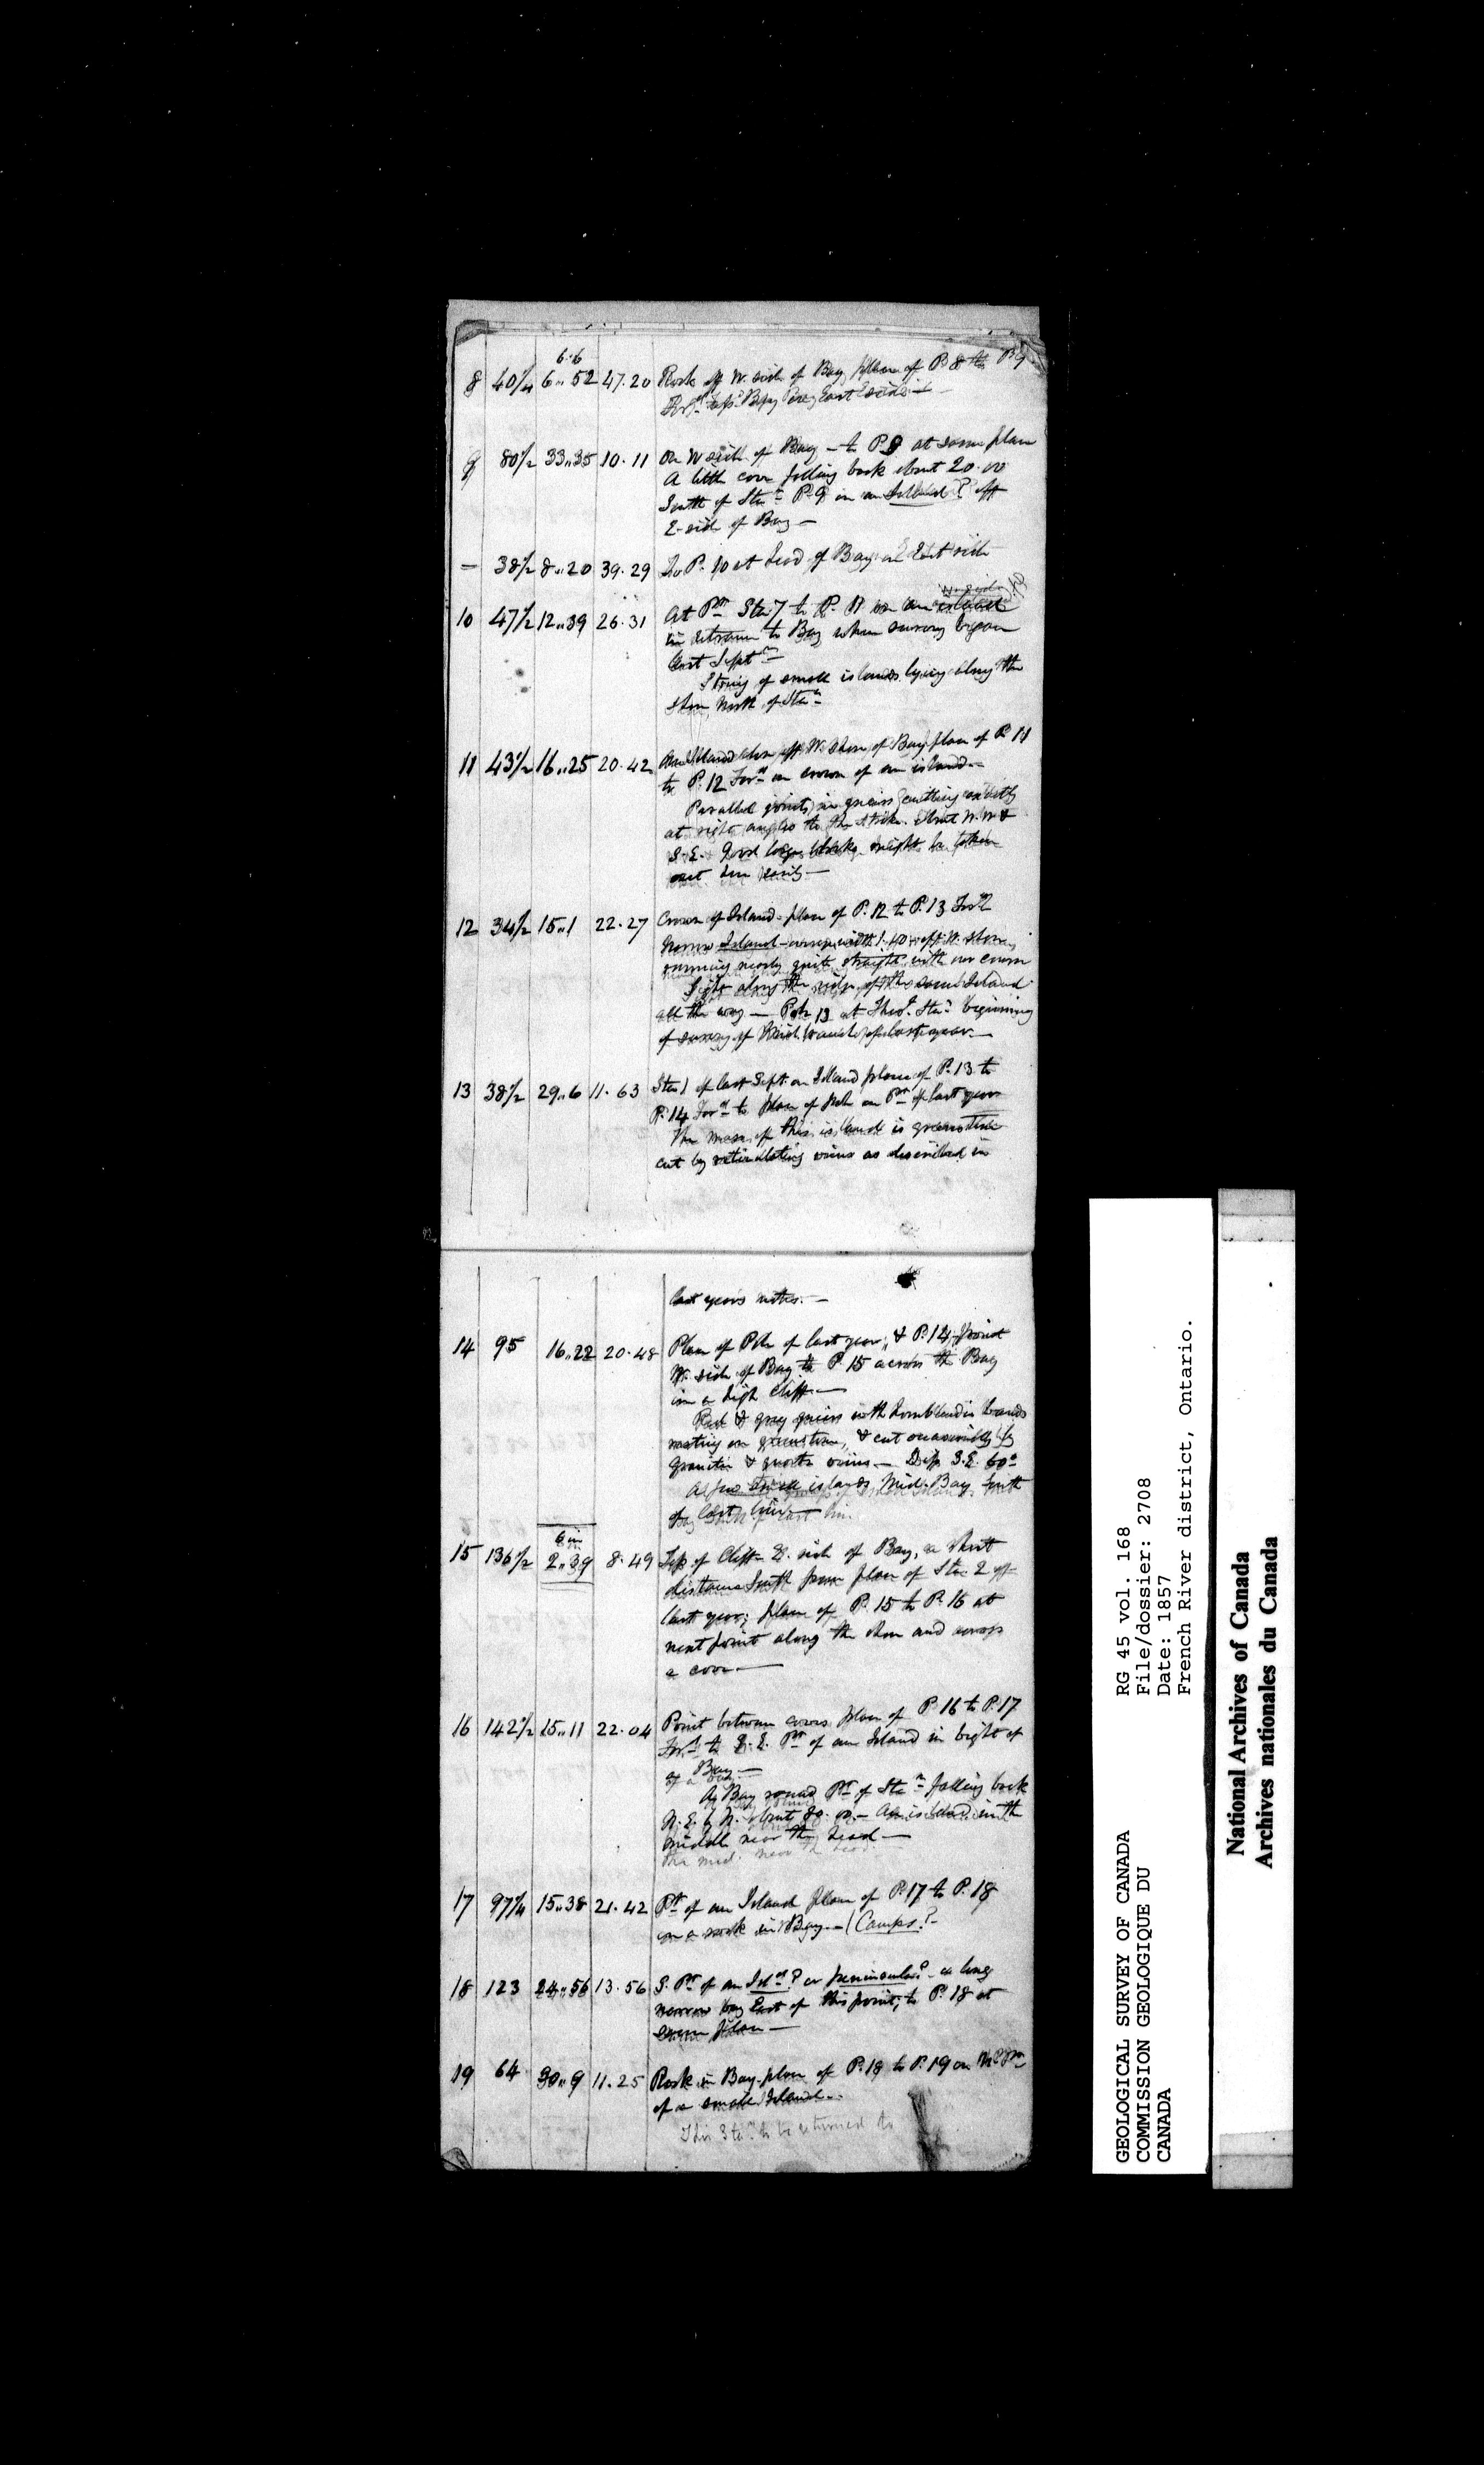 6.6
8 40 1/4 6,,52 47.20 Rock off W. side of Bay, place of P. 8 to P. 9
East side
9 80 1/2 33,,35 10.11 On W side of Bay — to P. 9 at same place
A little cove falling back about 20.00
South of Sta.n P. 9 is on an Island? off
E. side of Bay —
— 38 1/2 8,,20 39.29 To P. 10 at head of Bay on East side
10 47 1/2 12,,39 26.31 At Pt. Sta. 7 to P. 11 on an island
in entrance to Bay where survey began
last Sept.
String of small islands lying along the
shore, North of Sta.n
11 43 1/2 16,,25 20.42 Island close off W. shore of Bay, place of P. 11
to P. 12 For.d on crown of an island —
Parallel joints in gneiss cutting exactly
at right angles to the strike. About N.W &
S.E. Good large blocks might be taken
out here easily —
12 34 1/2 15,,1 22.27 Crown of Island place of P. 12 to P. 13 For.d
Narrow Island — off W. shore,
running nearly quite straight with our course
Sight along the side of the same Island
all the way — Pole 13 at Sta.n beginning
of survey of last year —
13 38 1/2 29,,6 11.63 Sta 1 of last Sept. on Island place of P. 13 to
P. 14 For.d to place of Pole on Pt. of last year
The mass of this island is greenstone
cut by reticulating veins as described in
last years notes. —
14 95 16,,22 20.48 Place of Pole of last year, & P. 14, point
W. side of Bay to P. 15 across the Bay
on a high cliff. —
Red & gray gneiss with hornblendic bands
resting on greenstone, & cut occasionally by
granitic & quartz veins — Dip. S.E. 60°
A few small islands Mid. Bay, South
of last line
6 in
15 136 1/2 2,,39 8.49 Top of Cliff E. side of Bay, a short
distance South from place of Sta 2 of
last year; place of P. 15 to P. 16 at
next point along the shore and across
a cove —
16 142 1/2 15,,11 22.04 Point between coves place of P. 16 to P. 17
For.d to S.E. Pt. of an Island in bight of
a Bay —
A Bay round Pt. of Sta.n falling back
N.E. b N. about 80.00 — An island in the
middle near the head —
the mid. near the head.
17 97 1/4 15,,38 21.42 Pt. of an Island place of P. 17 to P. 18
on a rock in Bay — (Camps?—
18 123 24,,56 13.56 S. Pt. of an Isl.d? or peninsula? — a long
narrow bay East of this point; to P. 18 at
same place —
19 64 30,,9 11.25 Rock in Bay place of P. 18 to P. 19 on
of a small Island —
This Sta.n to be returned to
GEOLOGICAL SURVEY OF CANADA
COMMISSION GEOLOGIQUE DU
CANADA
RG 45 vol. 168
File/dossier: 2708
Date: 1857
French River district, Ontario.
National Archives of Canada
Archives nationales du Canada